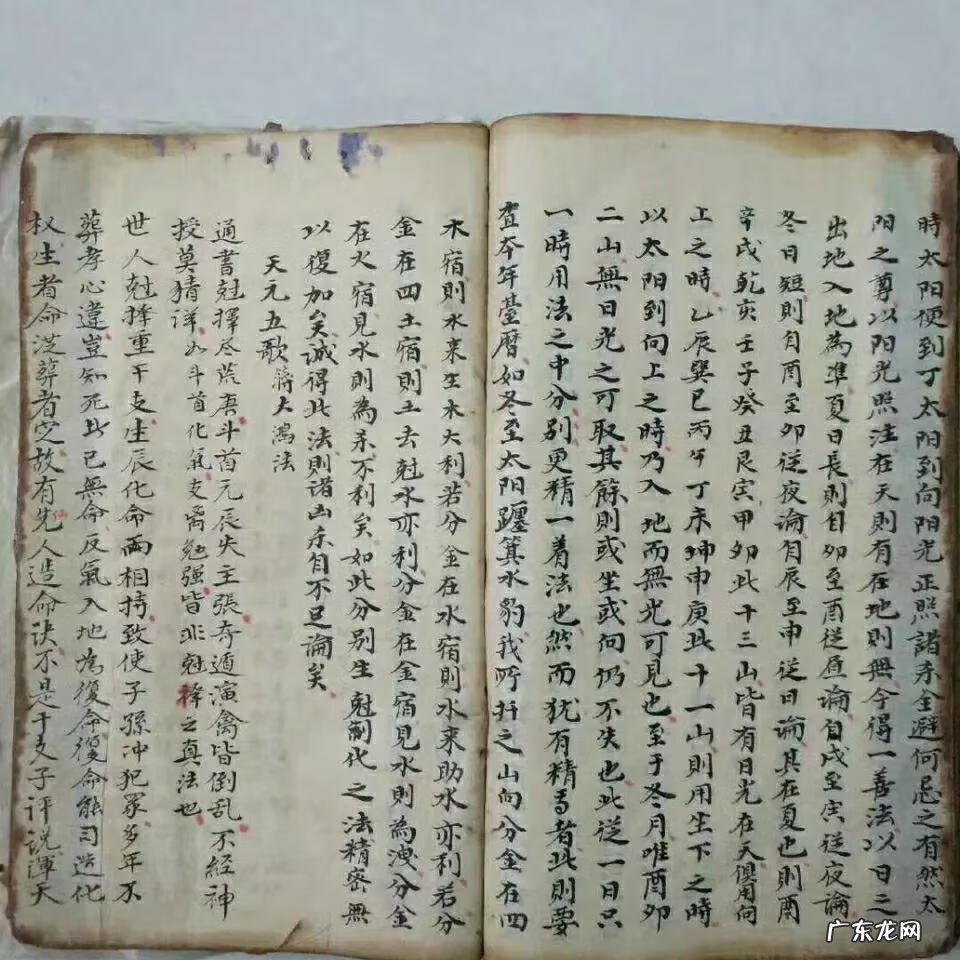 時太阳便到丁太阳到向阳光正照諸杀全避何忌之有然太
阳之尊以阳光照注在天則有在地則無今得一善法以日之
出地入地為準夏日長則自卯至酉従昼論自戌至寅従夜論
冬日短則自酉至卯従夜論自辰至申従日論其在夏也則酉
辛戌乾亥壬子癸丑艮寅甲卯此十三山皆有日光在天俱用向
上之時乙辰巽巳丙午丁未坤申庚此十一山則用生下之時
以太阳到向上之時乃入地而無光可見也至于冬月唯酉卯
二山無日光之可取其餘則或坐或向仍不失也此従一日只
一時用法之中分別更精一着法也然而犹有精焉者此則要
查本年臺曆如冬至太阳躔箕水豹我所扦之山向分金在四
木宿則水来生木大利若分金在水宿則水来助水亦利若分
金在四土宿則土去尅水亦利分金在金宿見水則為洩分金
在火宿見水則為杀不利矣如此分別生尅制化之法精密無
以復加矣誠得此法則诸凶杀自不足論矣
天元五歌 蒋大鴻法
通書尅擇尽荒唐斗首元辰失主張奇遁演禽皆倒乱不経神
授莫猜详如斗首化氣支离勉强皆非尅擇之真法也
世人尅擇重干支生辰化命兩相持致使子孫冲犯冢多年不
葬孝心違豈知死此已無命反氣入地為復命復命能司造化
权生者命決葬者空故有先仙人造命诀不是于支子评说渾天